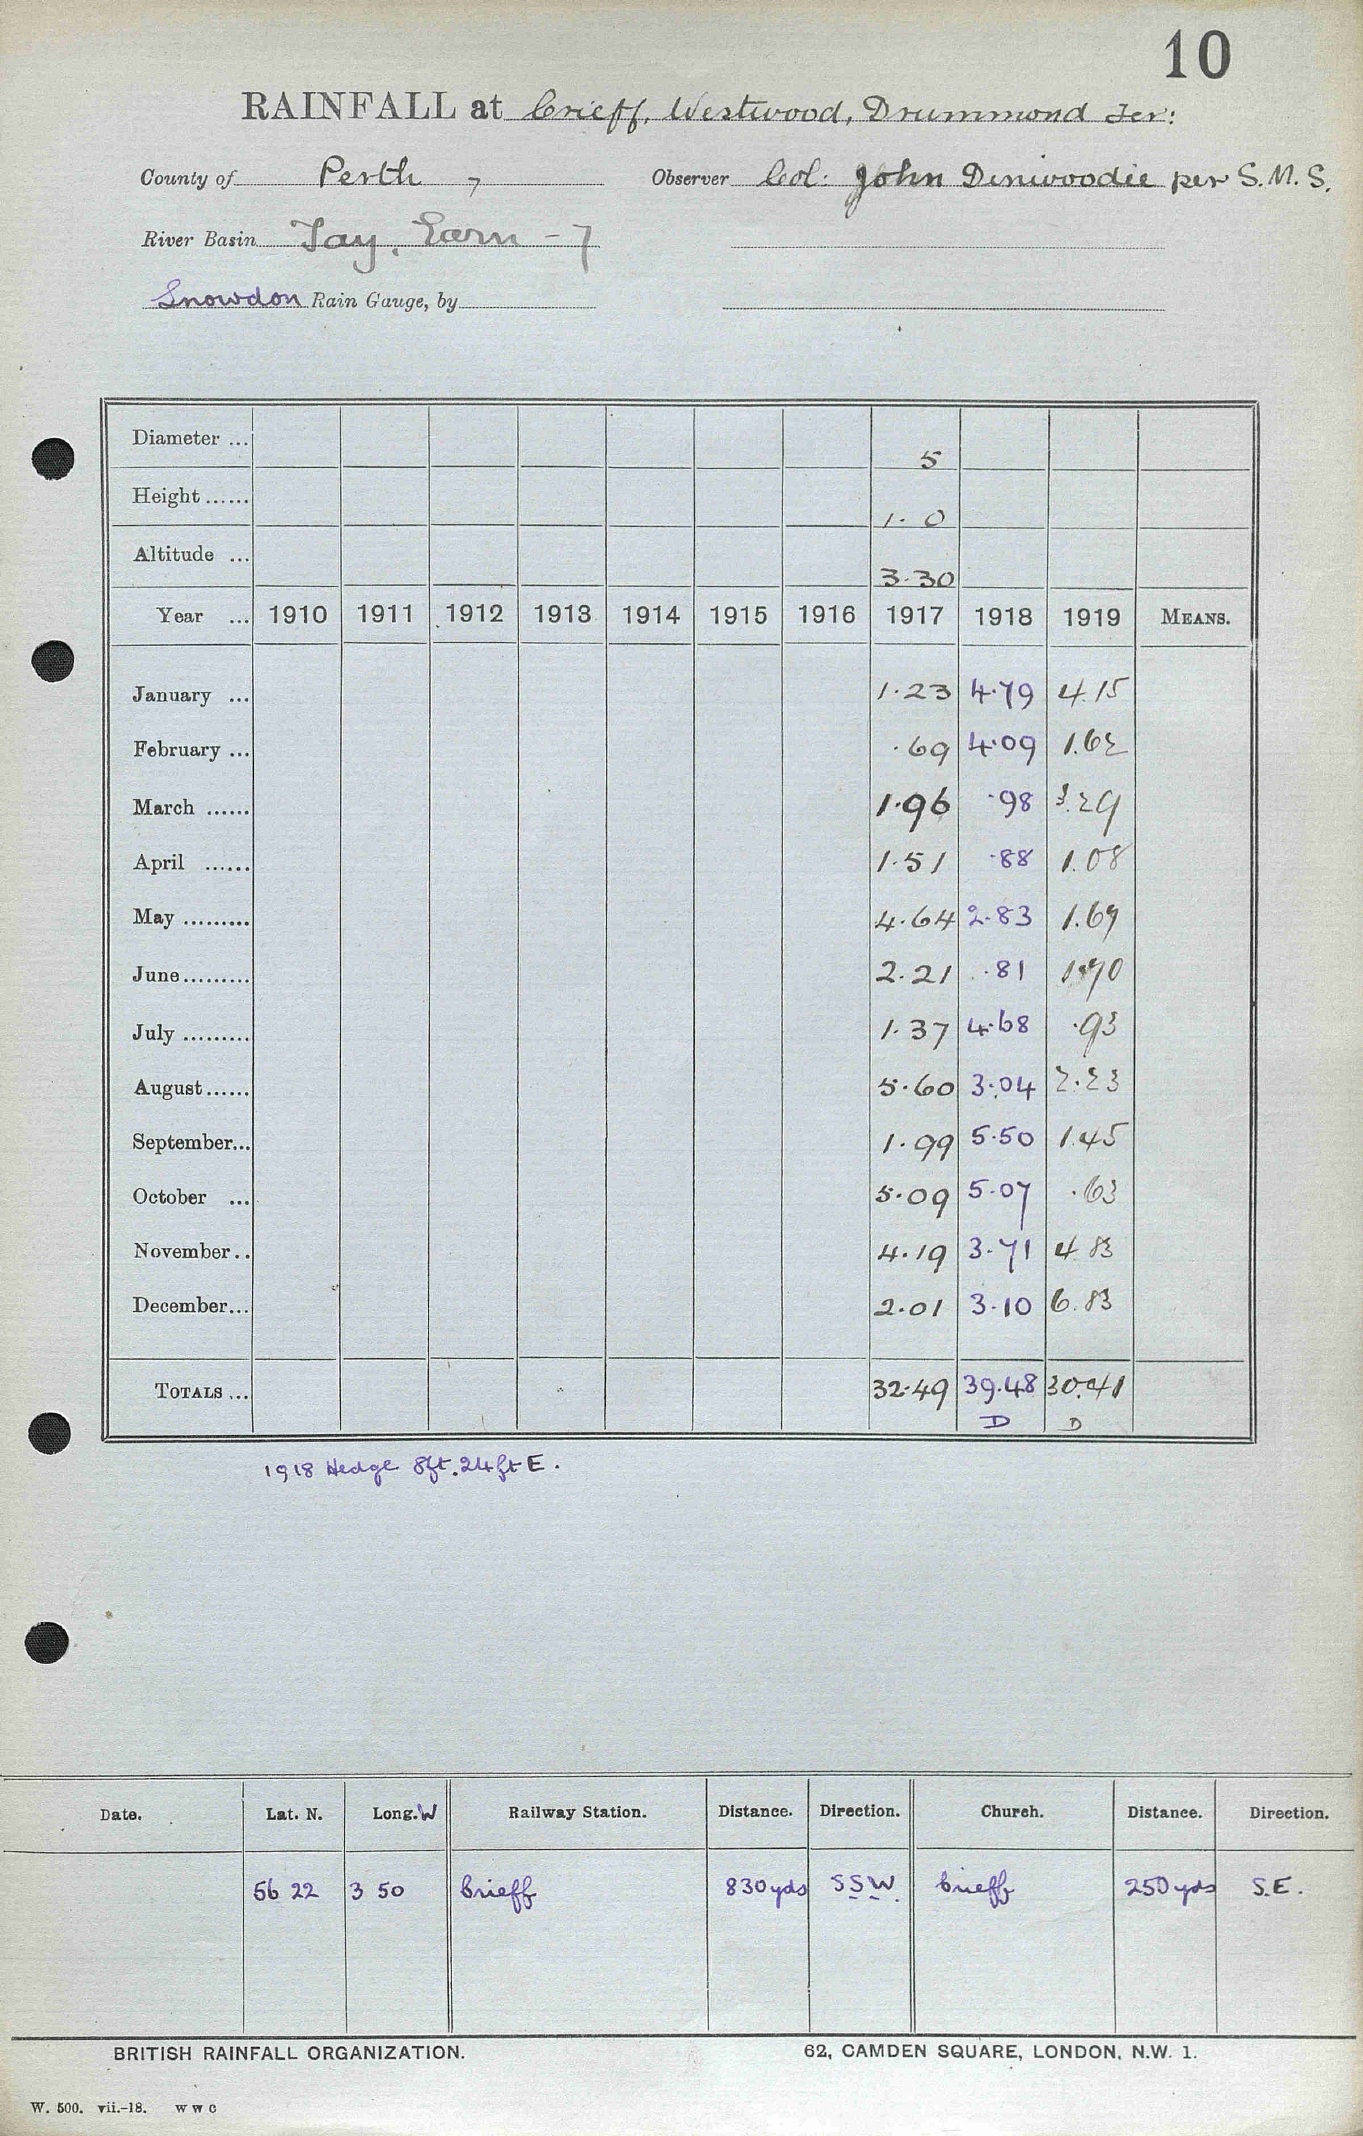 10
RAINFALL at Crieff, Westwood, Drummond Ter:
County of Perth 7 Observer Col: John Dinwoodie per S.M.S.
River Basin Tay. Earn - 7
Snowdon Rain Gauge, by
Diameter ... 5
Height ...... 1. 0
Altitude ... 3.30
Year ... 1910 1911 1912 1913 1914 1915 1916 1917 1918 1919 MEANS.
January ... 1.23 4.79 4.15
February ... .69 4.09 1.62
March ...... 1.96 .98 3.29
April ...... 1.51 .88 1.08
May ......... 4.64 2.83 1.67
June ......... 2.21 .81 1.70
July ......... 1.37 4.68 .93
August ...... 5.60 3.04 2.23
September... 1.99 5.50 1.45
October ... 5.09 5.07 .63
November.. 4.19 3.71 4.83
December... 2.01 3.10 6.83
TOTALS ... 32.49 39.48 30.41
D D
1918 Hedge 8ft. 24ft E.
Date. Lat. N. Long. W Railway Station. Distance. Direction. Church. Distance. Direction.
56 22 3 50 Crieff 830 yds SSW. Crieff 250 yds S.E.
BRITISH RAINFALL ORGANIZATION. 62, CAMDEN SQUARE, LONDON, N.W. 1.
W. 500. vii.-18. W W C